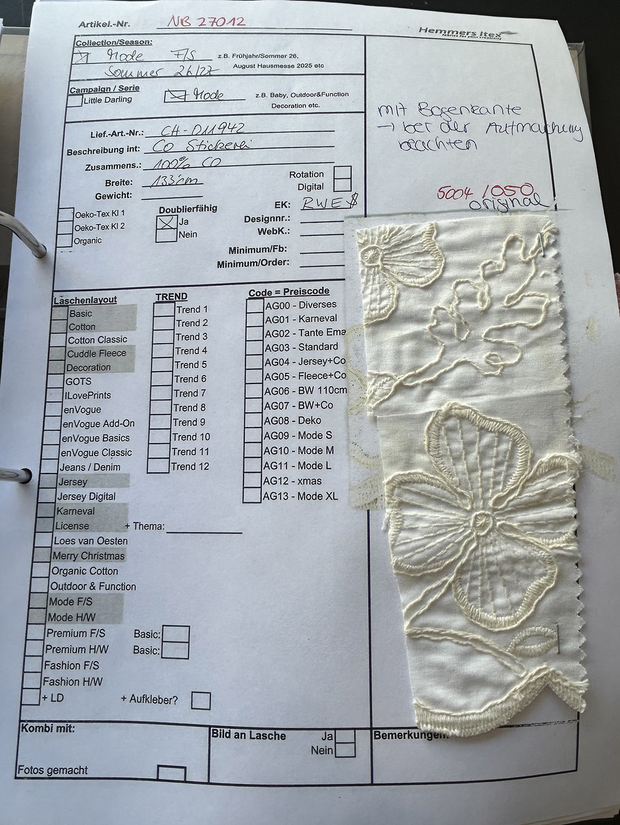 Artikel.-Nr. NB 27012
Hemmers Itex
Collection/Season:
Mode F/S z.B. Frühjahr/Sommer 26,
Sommer 26/27 August Hausmesse 2025 etc
Campaign / Serie
Little Darling Mode z.B. Baby, Outdoor&Function
Decoration etc.
mit Bogenkante
→ bei der Aufmachung
beachten
Lief.-Art.-Nr.: CH-D11942
Beschreibung int: CO Stickerei
Zusammens.: 100% CO
Breite: 133cm
Gewicht:
Rotation
Digital
5004 / 050
original
Oeko-Tex Kl 1
Oeko-Tex Kl 2
Organic
Doublierfähig
Ja
Nein
EK: RWE $
Designnr.:
WebK.:
Minimum/Fb:
Minimum/Order:
Laschenlayout
Basic
Cotton
Cotton Classic
Cuddle Fleece
Decoration
GOTS
ILovePrints
enVogue
enVogue Add-On
enVogue Basics
enVogue Classic
Jeans / Denim
Jersey
Jersey Digital
Karneval
License + Thema:
Loes van Oesten
Merry Christmas
Organic Cotton
Outdoor & Function
Mode F/S
Mode H/W
Premium F/S Basic:
Premium H/W Basic:
Fashion F/S
Fashion H/W
+ LD + Aufkleber?
TREND
Trend 1
Trend 2
Trend 3
Trend 4
Trend 5
Trend 6
Trend 7
Trend 8
Trend 9
Trend 10
Trend 11
Trend 12
Code = Preiscode
AG00 - Diverses
AG01 - Karneval
AG02 - Tante Ema
AG03 - Standard
AG04 - Jersey+Co
AG05 - Fleece+Co
AG06 - BW 110cm
AG07 - BW+Co
AG08 - Deko
AG09 - Mode S
AG10 - Mode M
AG11 - Mode L
AG12 - xmas
AG13 - Mode XL
Kombi mit:
Fotos gemacht
Bild an Lasche Ja
Nein
Bemerkungen